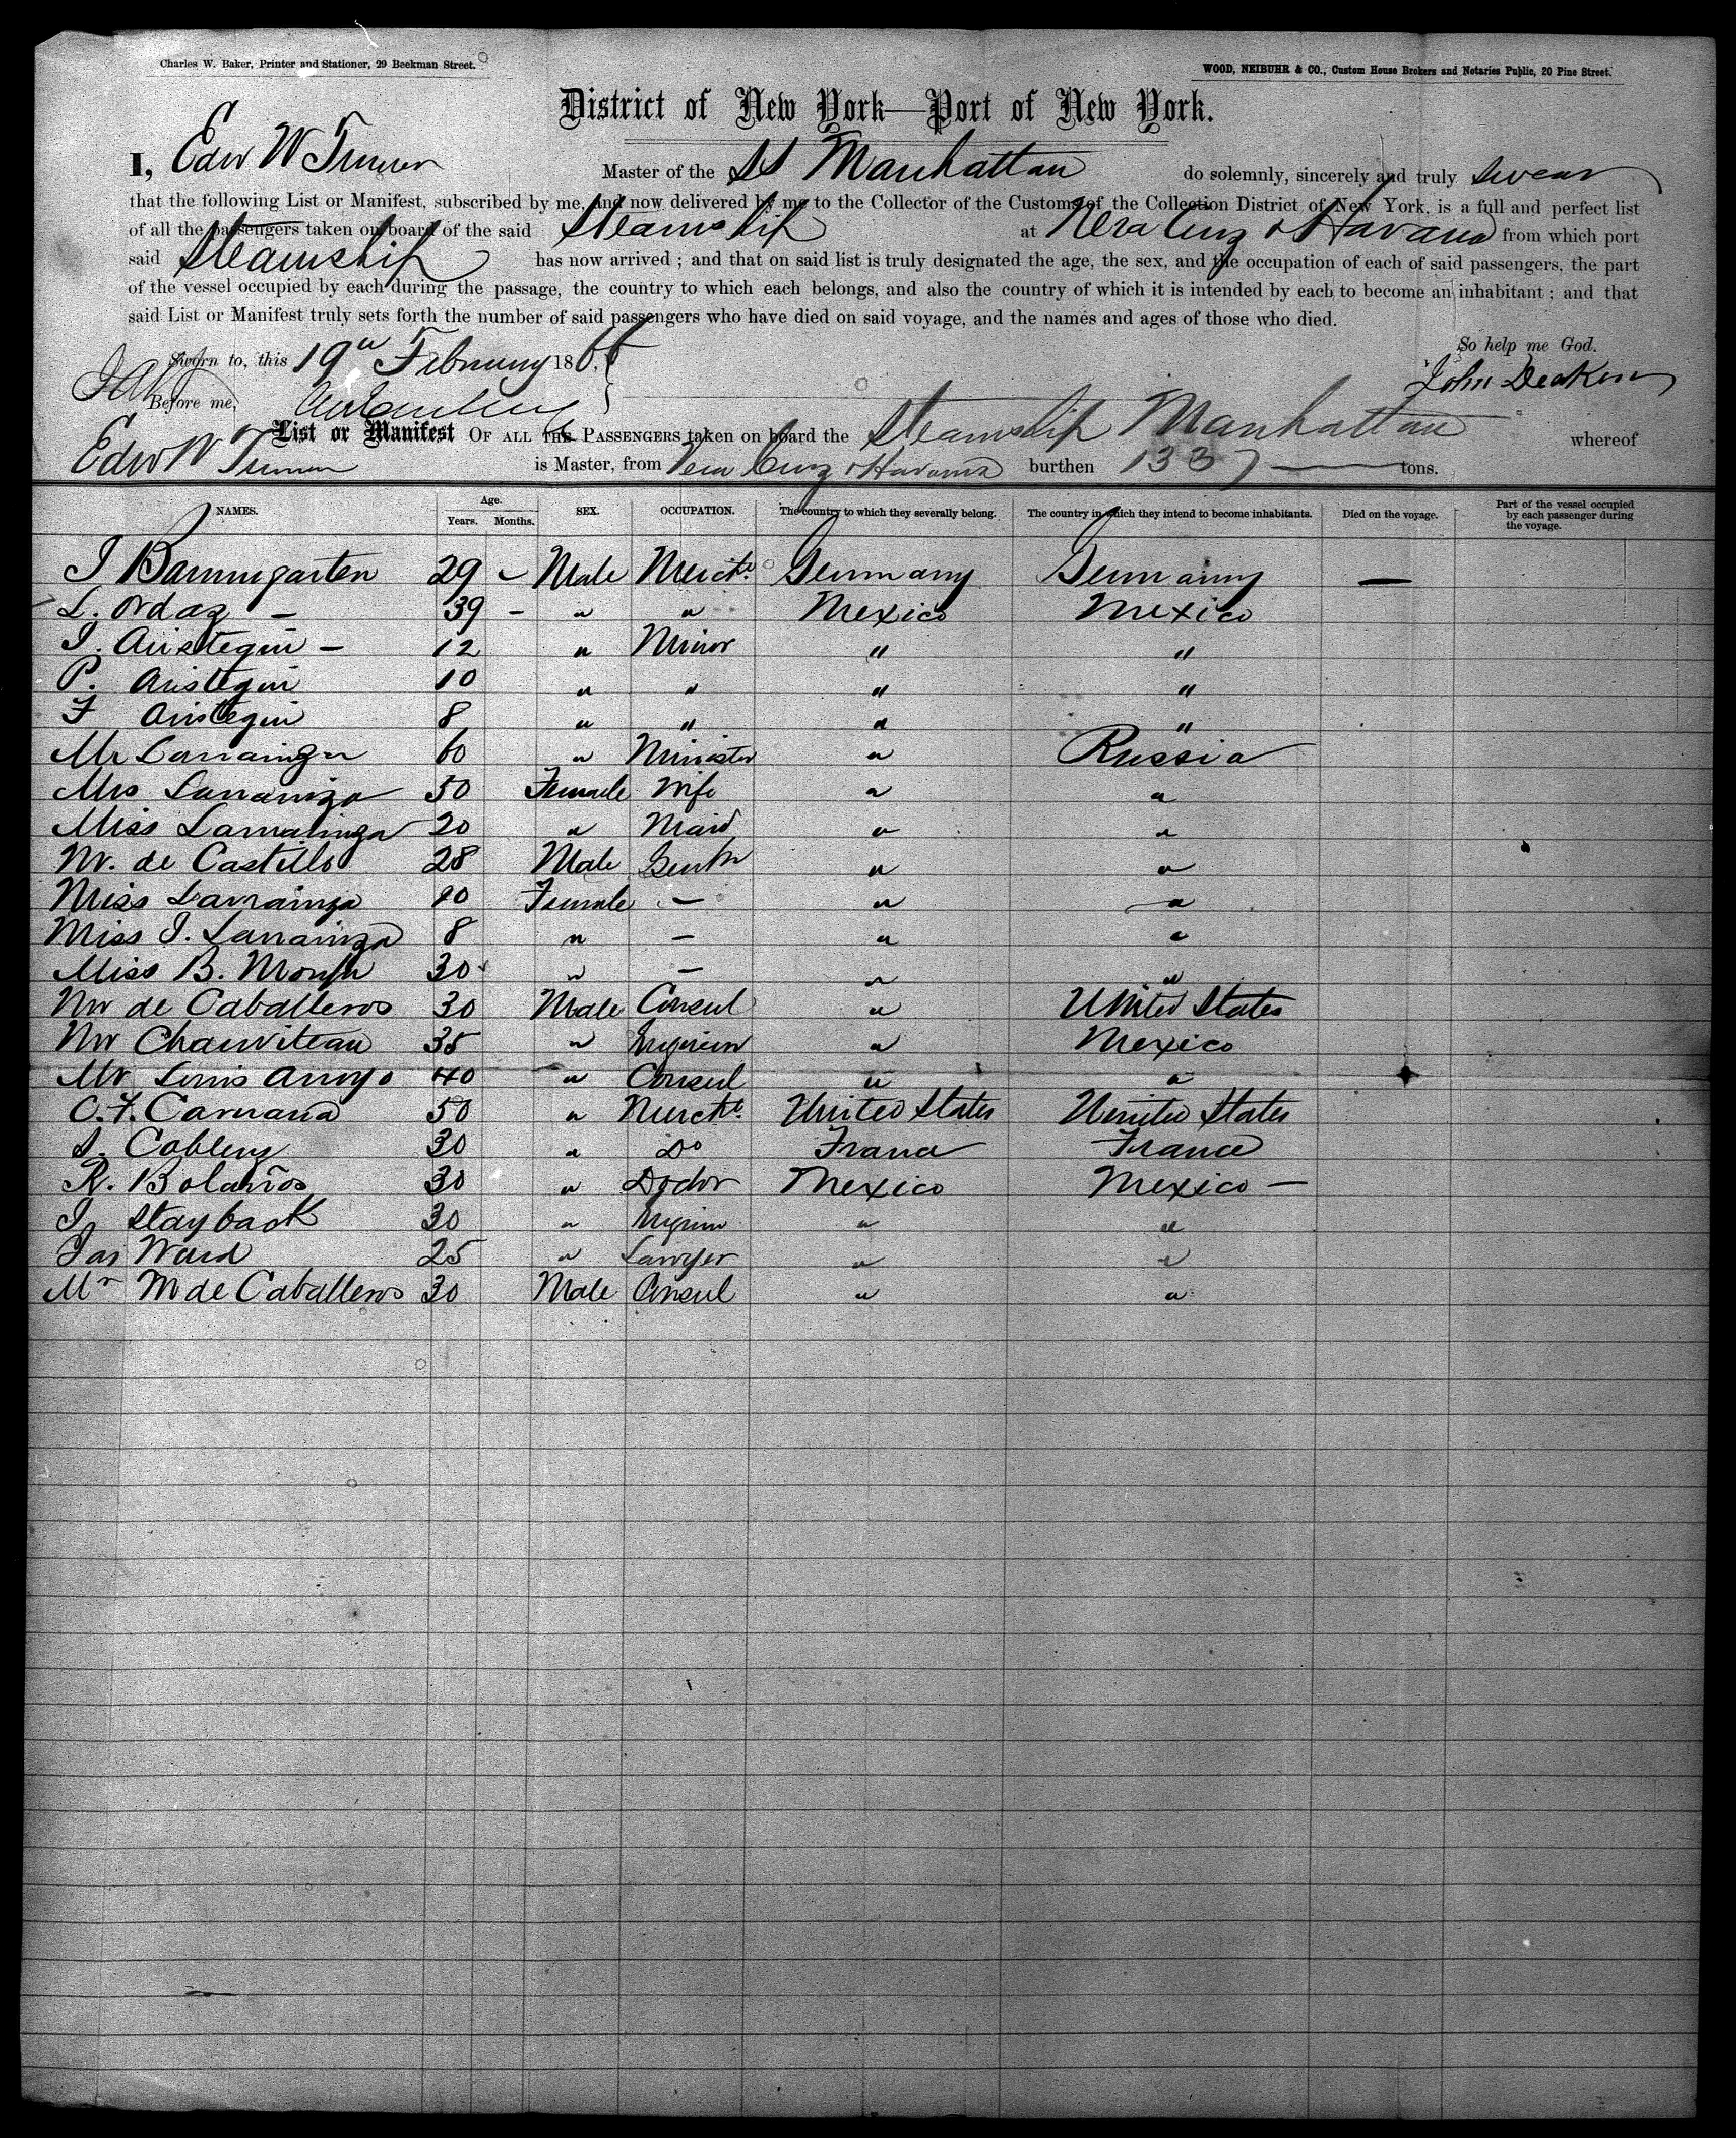 Charles W. Baker, Printer and Stationer, 29 Beekman Street.
WOOD, NEIBUHR & CO., Custom House Brokers and Notaries Public, 20 Pine Street.
District of New York—Port of New York.
I, Edw W Master of the SS Manhattan do solemnly, sincerely and truly swear
that the following List or Manifest, subscribed by me, and now delivered by me to the Collector of the Customs of the Collection District of New York, is a full and perfect list
of all the passengers taken on board of the said Steamship at Vera Cruz & Havana from which port
said Steamship has now arrived ; and that on said list is truly designated the age, the sex, and the occupation of each of said passengers, the part
of the vessel occupied by each during the passage, the country to which each belongs, and also the country of which it is intended by each to become an inhabitant ; and that
said List or Manifest truly sets forth the number of said passengers who have died on said voyage, and the names and ages of those who died.
So help me God.
Sworn to, this 19th February 1866
John Deaken
Before me,
List or Manifest OF ALL THE PASSENGERS taken on board the Steamship Manhattan whereof
Edw W is Master, from Vera Cruz & Havana burthen 1337 tons.
NAMES. Age. Years. Months. SEX. OCCUPATION. The country to which they severally belong. The country in which they intend to become inhabitants. Died on the voyage. Part of the vessel occupied by each passenger during the voyage.
J Baumgarten 29 - Male Mercht. Germany Germany —
L. Ordaz - 39 - " " Mexico Mexico
J. Aristegui - 12 " Minor " "
P. Aristegui 10 " " " "
F Aristegui 8 " " " "
Mr Larrainzar 60 " Minister " Russia
Mrs Larrainza 50 Female Wife " "
Miss Larrainza 20 " Maid " "
Mr. de Castillo 28 Male Gentn " "
Miss Larrainza Female - " "
Miss J. Larrainza 8 " - " "
Miss B. 30 " - " "
Mr de Caballeros 30 Male Consul " United States
Mr Chauviteau 35 " " Mexico
Mr Louis Arroyo 40 " Consul " "
C. F. Carnana 50 " Mercht. United States United States
S. Coblenz 30 " Do France France
R. Bolaños 30 " Doctor Mexico Mexico -
J. Stayback 30 " " "
Jas Ward 25 " Lawyer " "
Mr M de Caballeros 30 Male Consul " "